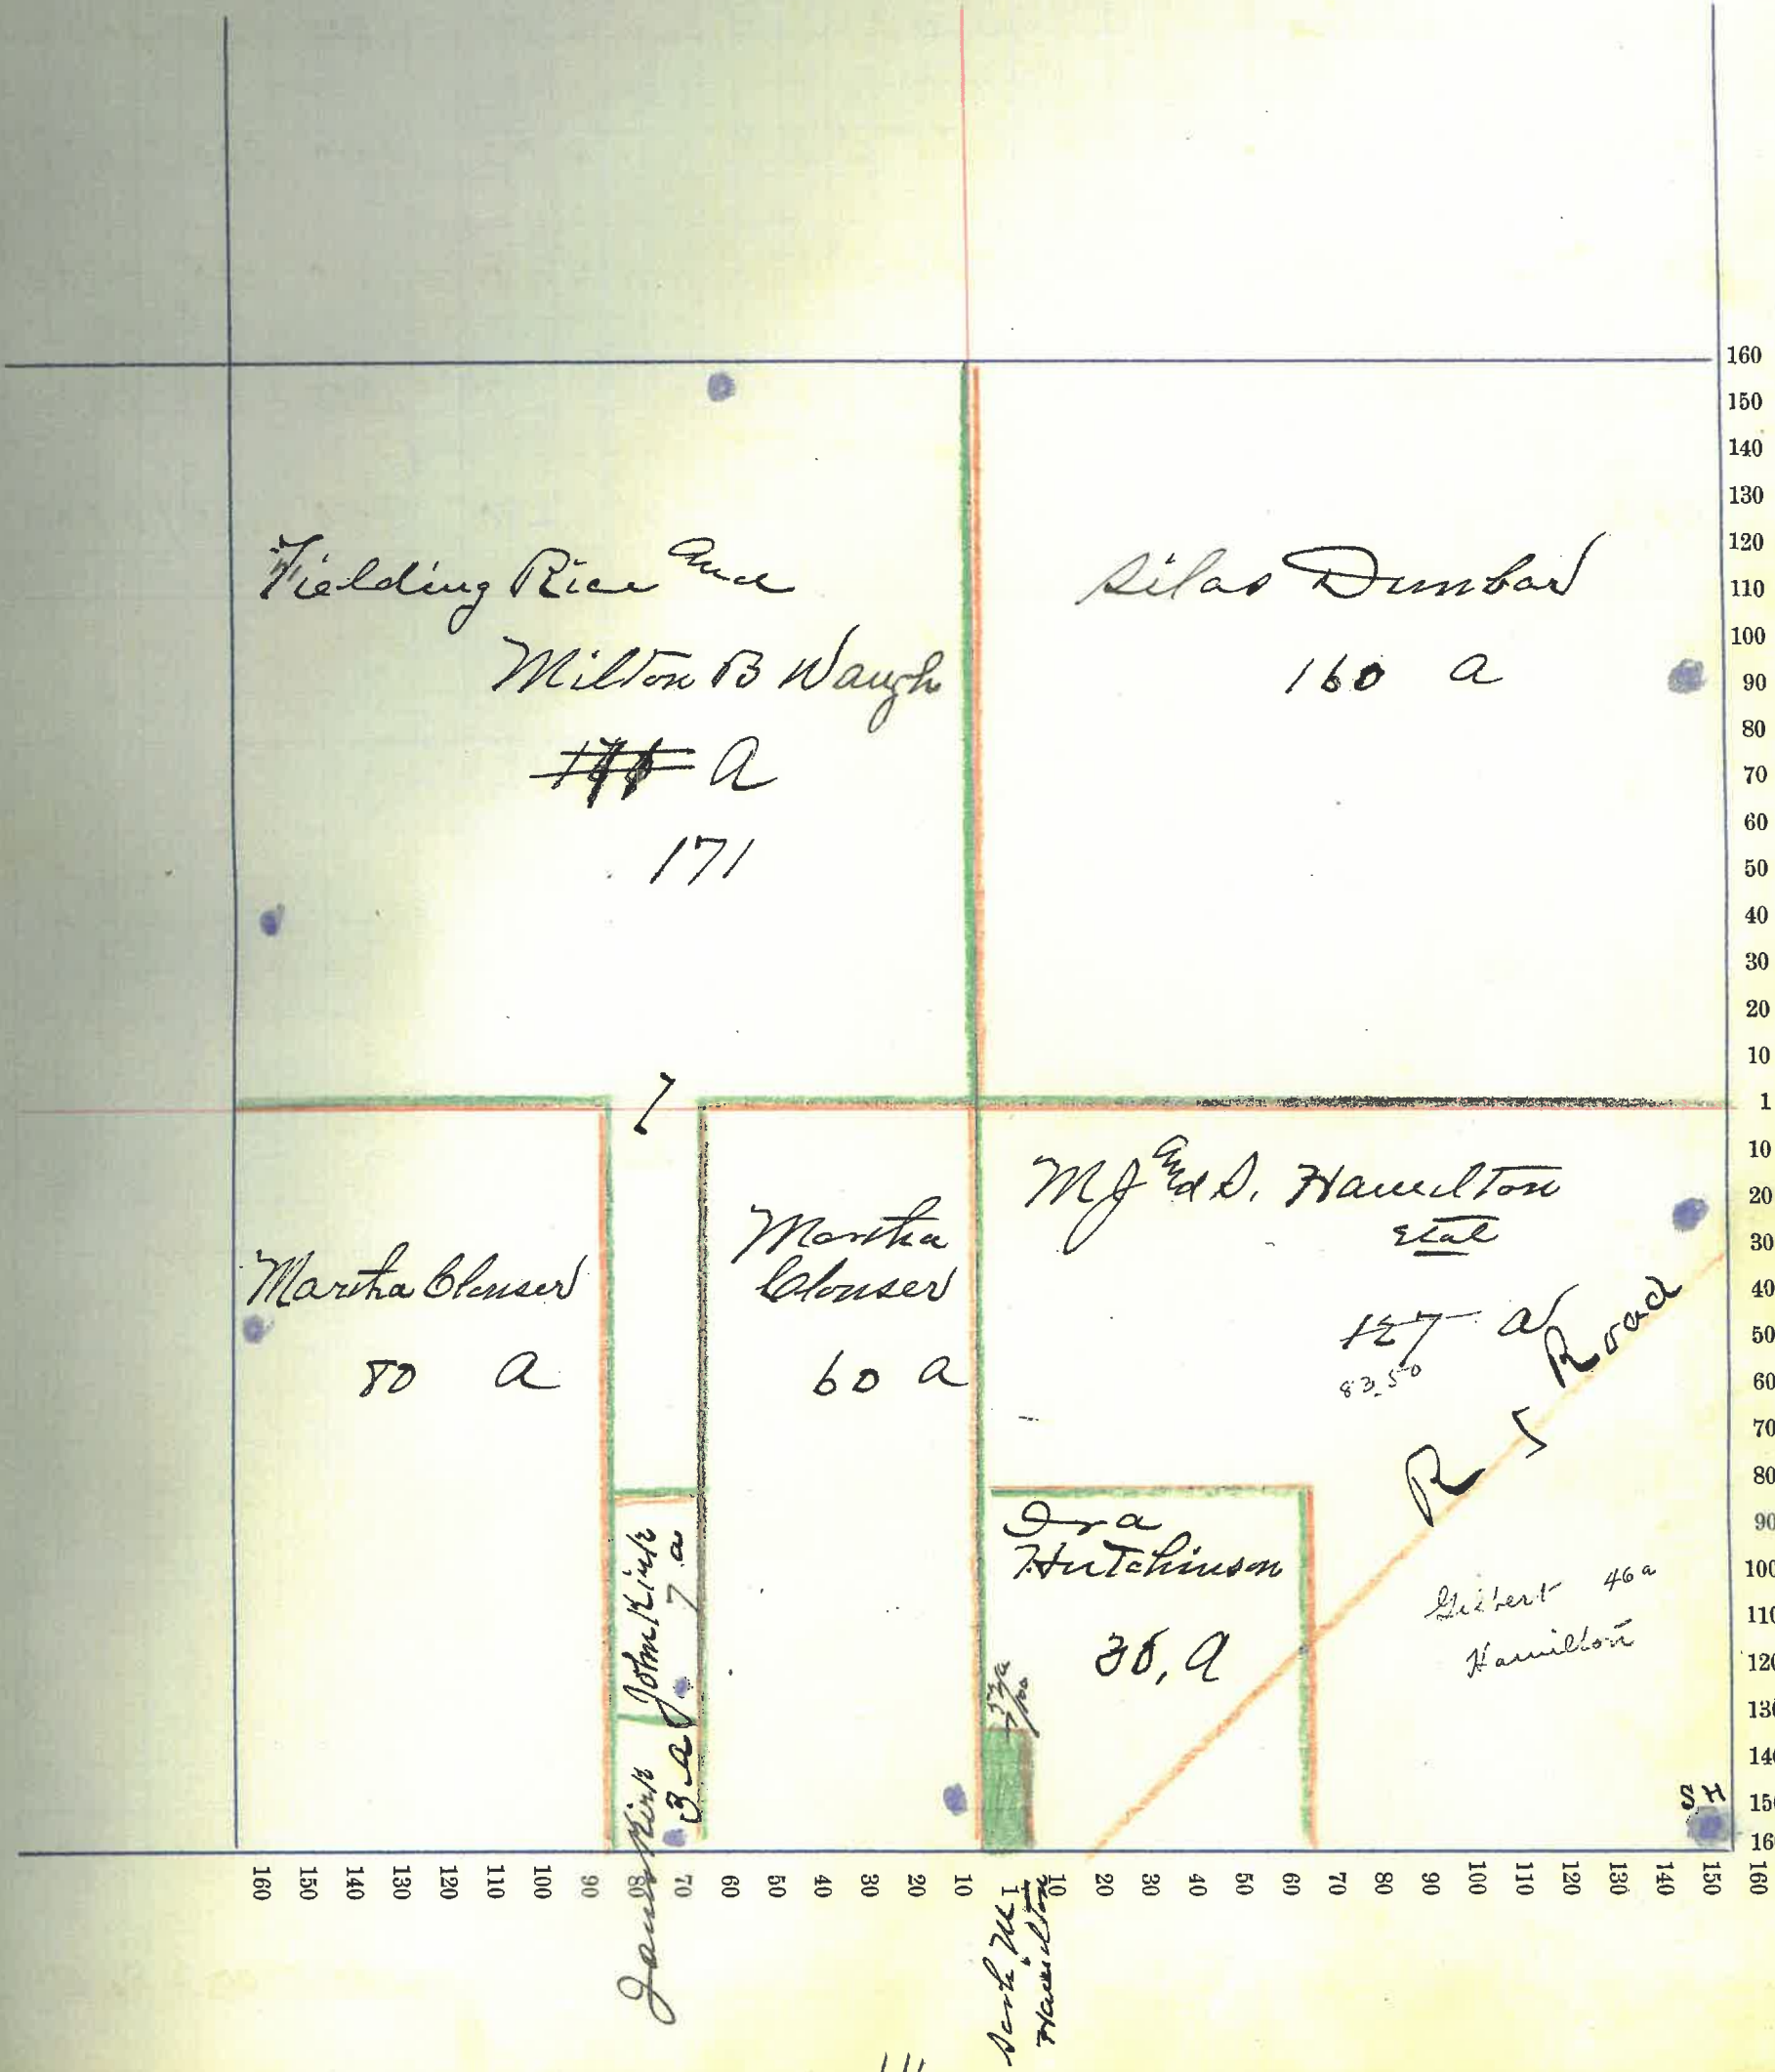 Fielding Rice and
Milton B Waugh
A
171
Silas Dunbar
160 a
160
150
140
130
120
110
100
90
80
70
60
50
40
30
20
10
1
10
20
30
40
50
60
70
80
90
100
110
120
130
140
150
160
Martha Clouser
80 a
Martha
Clouser
60 a
M J and S. Hamilton
127 a
83.50
R R Road
John Kirk
7 a
James Kirk
3 a
Ira
Hutchinson
a
Gilbert 46 a
Hamilton
160 150 140 130 120 110 100 90 80 70 60 50 40 30 20 10 1 10 20 30 40 50 60 70 80 90 100 110 120 130 140 150 160
Hamilton